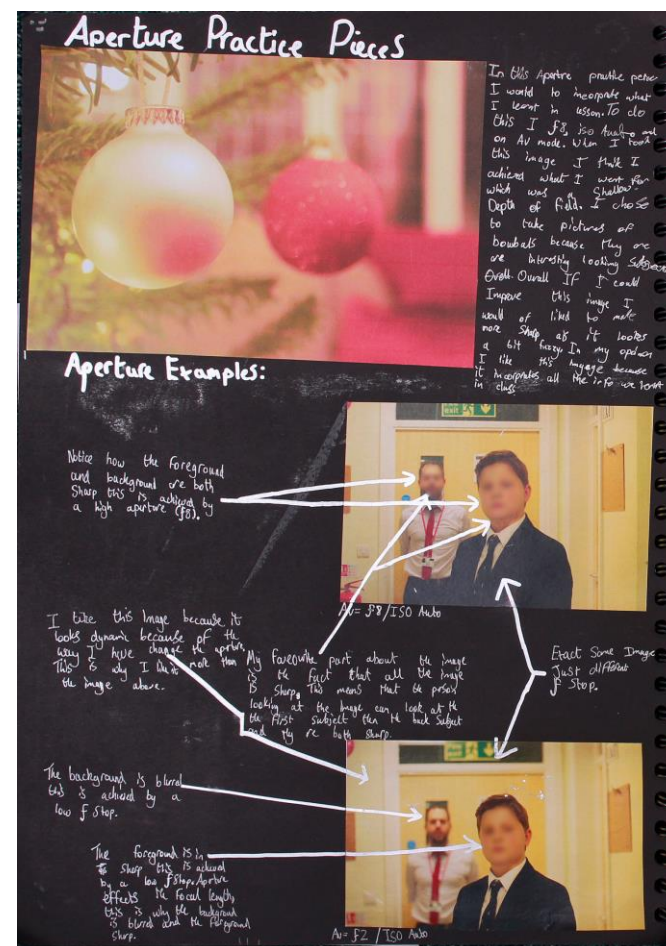 Aperture Practice Pieces
In this Aperture practise peice
I would to incorprate what
I learnt in lesson. To do
this I f8, iso Auto and
on Av mode. When I took
this image I think I
achieved what I went for
which was a Shallow
Depth of field. I chose
to take pictures of
because they are
are interesting looking
Overall If I could
Improve this image I
would of liked to make
more Sharp as it looks
a bit fuzzy. In my opinion
I like this because
it incorprates all the info we learnt
in class
Aperture Examples:
exit
Notice how the foreground
and background are both
Sharp this is achieved by
a high aperture (f8).
Av= f8/ISO Auto
I like this Image because it
looks dynamic because of the
way I have change the aperture,
This is why I like it more than
the image above.
My favourite part about the image
is the fact that all the image
is Sharp. This means that the person
looking at the Image can look at the
the first subject then the back Subject
and they re both sharp.
Exact Same Image
Just different
f Stop.
The background is blurred
this is achieved by a
low f Stop.
The foreground is in
sharp this is achieved
by a low f Stop. Aperture
effects the focal length,
this is why the background
is blurred and the foreground
sharp.
Av= f2 / ISO Auto